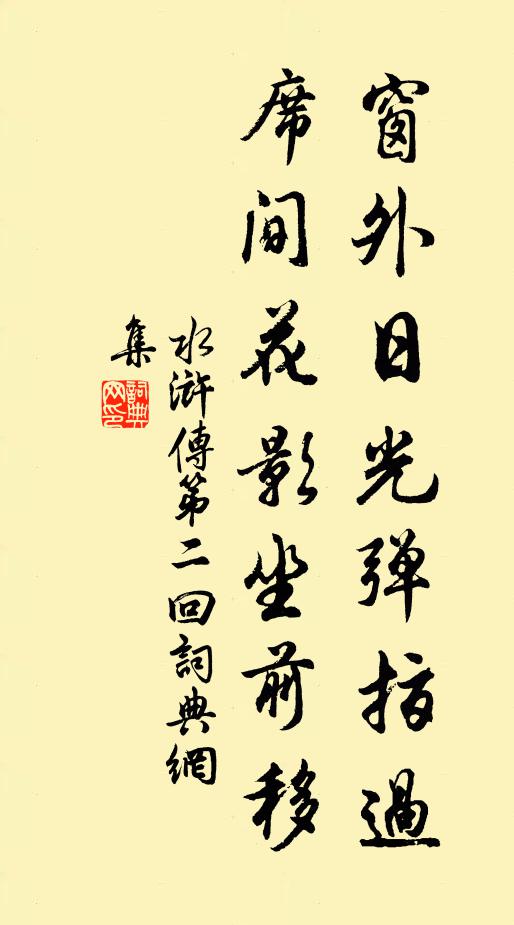 窗外日光弹指過
席间花影坐前移
水滸傳第二回詞典網
集
詞典
网印